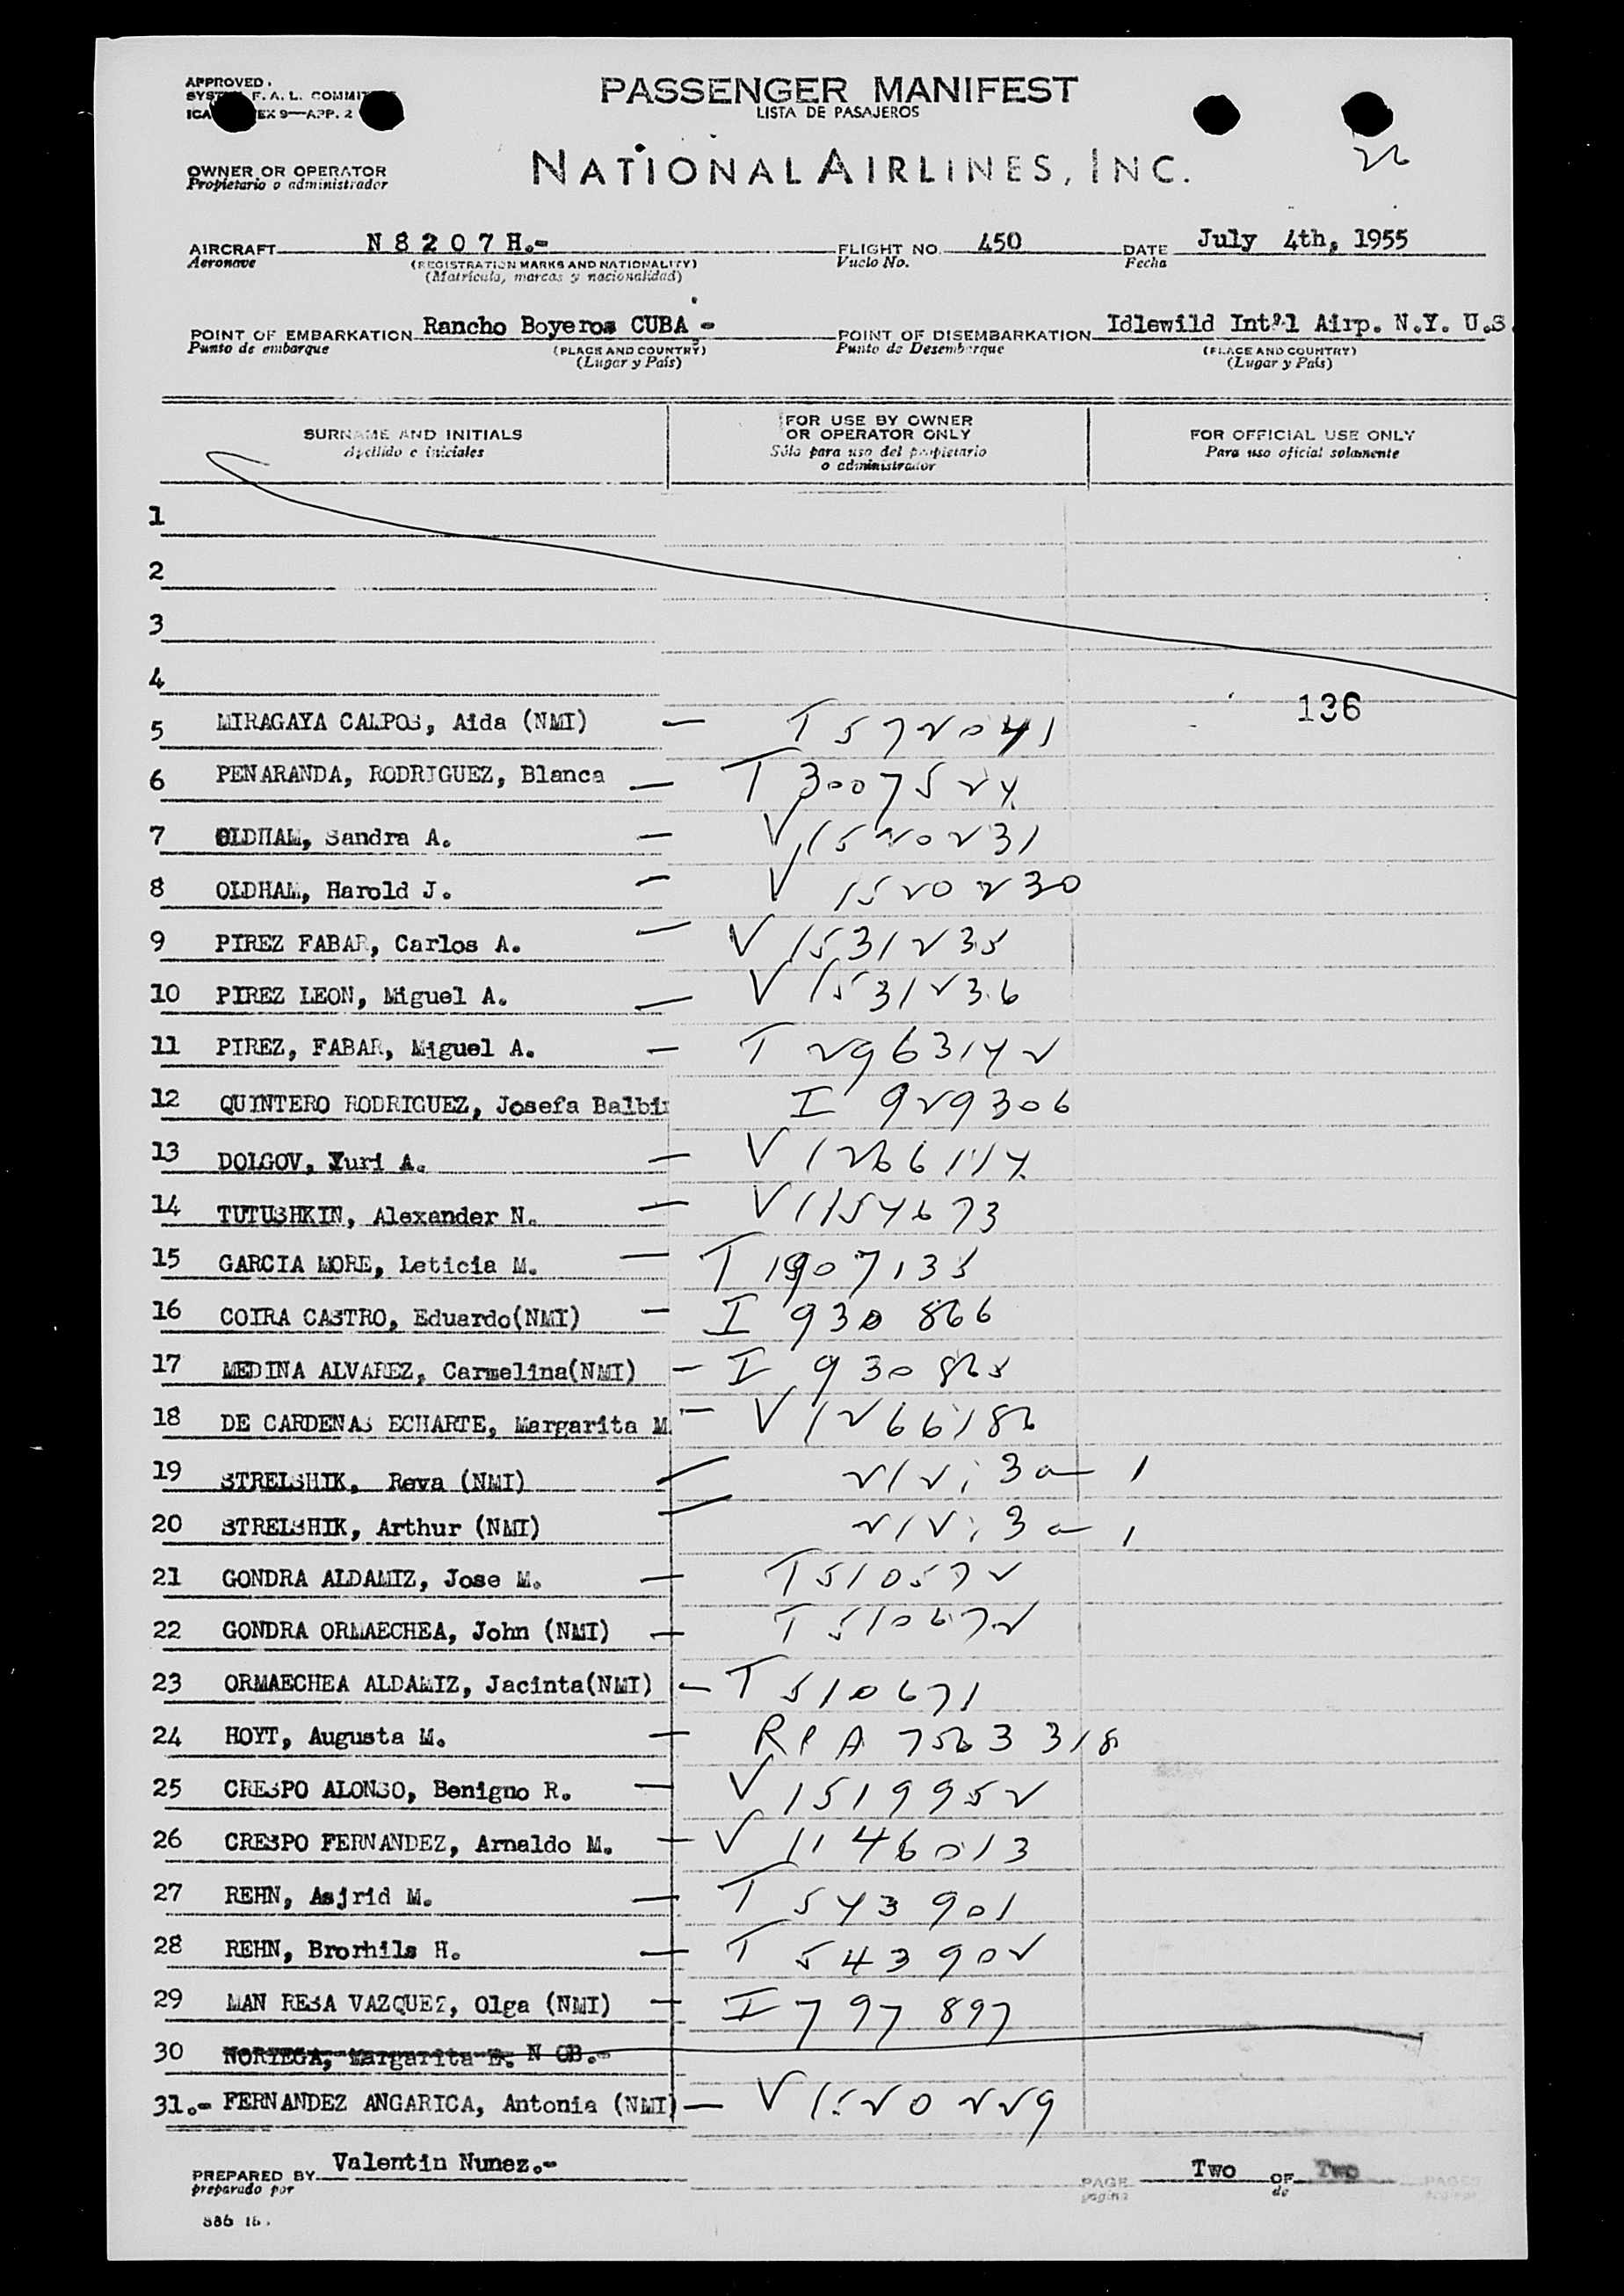 APPROVED
F. A. L.
EX 9—APP. 2
22
PASSENGER MANIFEST
LISTA DE PASAJEROS
OWNER OR OPERATOR
Propietario o administrador
NATIONAL AIRLINES, INC.
AIRCRAFT N 8 2 0 7 H.- FLIGHT NO. 450 DATE July 4th, 1955
Aeronave (REGISTRATION MARKS AND NATIONALITY) Vuelo No. Fecha
(Matrícula, marcas y nacionalidad)
POINT OF EMBARKATION Rancho Boyeros CUBA - POINT OF DISEMBARKATION Idlewild Int'l Airp. N.Y. U.S.
Punto de embarque (PLACE AND COUNTRY) Punto de Desembarque (PLACE AND COUNTRY)
(Lugar y País) (Lugar y País)
SURNAME AND INITIALS FOR USE BY OWNER OR OPERATOR ONLY FOR OFFICIAL USE ONLY
Apellido e iniciales Sólo para uso del propietario o administrador Para uso oficial solamente
1
2
3
4
136
5 MIRAGAYA CALPOS, Aida (NMI) — T 572041
6 PENARANDA, RODRIGUEZ, Blanca — T 3007524
7 OLDHAM, Sandra A. — V 1520231
8 OLDHAM, Harold J. — V 1520230
9 PIREZ FABAR, Carlos A. — V 1531235
10 PIREZ LEON, Miguel A. — V 1531236
11 PIREZ, FABAR, Miguel A. — T 2963142
12 QUINTERO RODRIGUEZ, Josefa Balbi I 929306
13 DOLGOV, Yuri A. — V 1266114
14 TUTUSHKIN, Alexander N. — V 1154673
15 GARCIA MORE, Leticia M. — T 1907135
16 COIRA CASTRO, Eduardo(NMI) — I 930 866
17 MEDINA ALVAREZ, Carmelina(NMI) — I 930 865
18 DE CARDENAS ECHARTE, Margarita M. — V 1266182
19 STRELSHIK, Reva (NMI)
20 STRELSHIK, Arthur (NMI)
21 GONDRA ALDAMIZ, Jose M. — T 510572
22 GONDRA ORMAECHEA, John (NMI) — T 510672
23 ORMAECHEA ALDAMIZ, Jacinta(NMI) — T 510671
24 HOYT, Augusta M. — R P A 7563 318
25 CRESPO ALONSO, Benigno R. — V 1519952
26 CRESPO FERNANDEZ, Arnaldo M. — V 1146013
27 REHN, Asjrid M. — T 543901
28 REHN, Brorhils H. — T 543902
29 MAN RESA VAZQUEZ, Olga (NMI) — I 797 897
30 NORIEGA, Margarita E. N OB.-
31.- FERNANDEZ ANGARICA, Antonia (NMI) — V 1520229
PREPARED BY Valentin Nunez.- PAGE Two OF Two PAGES
preparado por pagina de